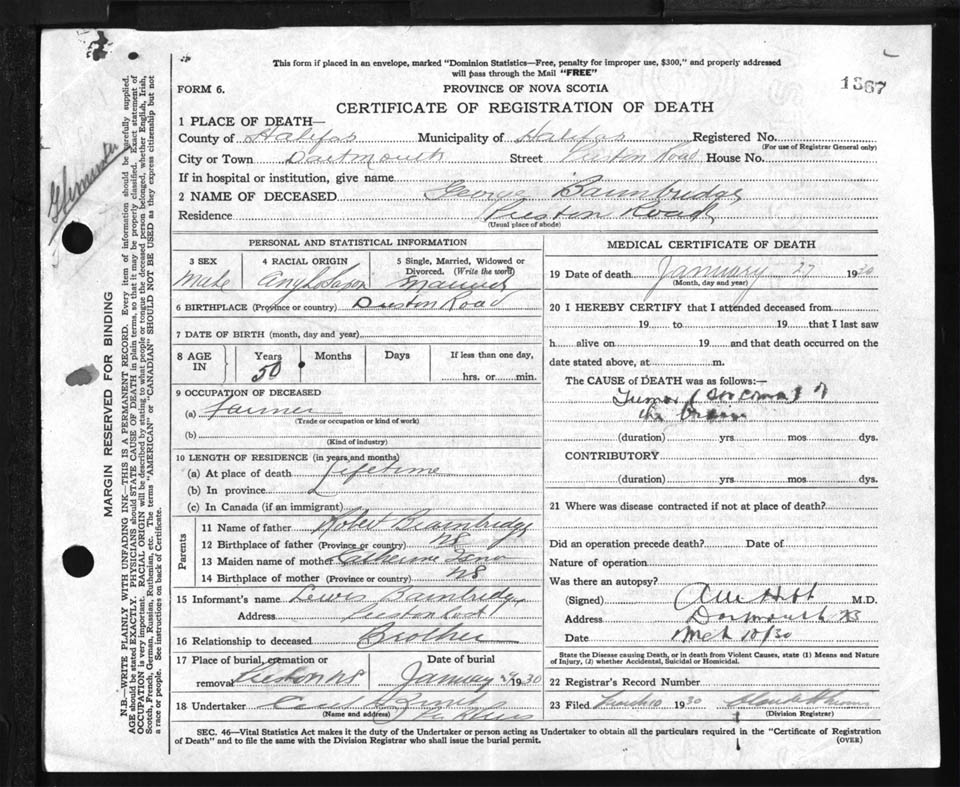 This form if placed in an envelope, marked "Dominion Statistics—Free, penalty for improper use, $300," and properly addressed
will pass through the Mail "FREE"
1867
FORM 6.
PROVINCE OF NOVA SCOTIA
CERTIFICATE OF REGISTRATION OF DEATH
1 PLACE OF DEATH—
County of Halifax Municipality of Halifax Registered No.
(For use of Registrar General only)
City or Town Dartmouth Street Preston Road House No.
If in hospital or institution, give name
2 NAME OF DECEASED George Bambridge
Residence Preston Road
(Usual place of abode)
PERSONAL AND STATISTICAL INFORMATION
3 SEX
Male
4 RACIAL ORIGIN
Anglo Saxon
5 Single, Married, Widowed or
Divorced. (Write the word)
Married
6 BIRTHPLACE (Province or country) Preston Road
7 DATE OF BIRTH (month, day and year)
8 AGE IN
Years Months Days If less than one day,
50 hrs. or min.
9 OCCUPATION OF DECEASED
(a) Farmer
(Trade or occupation or kind of work)
(b)
(Kind of industry)
10 LENGTH OF RESIDENCE (in years and months)
(a) At place of death Lifetime
(b) In province
(c) In Canada (if an immigrant)
Parents
11 Name of father Robert Bambridge
12 Birthplace of father (Province or country) NS
13 Maiden name of mother Catherine
14 Birthplace of mother (Province or country) NS
15 Informant's name Lewis Bambridge
Address Preston Road
16 Relationship to deceased Brother
17 Place of burial, cremation or
removal Preston NS
Date of burial
January 1930
18 Undertaker
(Name and address)
MEDICAL CERTIFICATE OF DEATH
19 Date of death January 27 1930
(Month, day and year)
20 I HEREBY CERTIFY that I attended deceased from
19 to 19 that I last saw
h alive on 19 and that death occurred on the
date stated above, at m.
The CAUSE of DEATH was as follows:—
Tumor (Sarcoma) of
the Brain
(duration) yrs. mos. dys.
CONTRIBUTORY
(duration) yrs. mos. dys.
21 Where was disease contracted if not at place of death?
Did an operation precede death? Date of
Nature of operation
Was there an autopsy?
(Signed) M.D.
Address Dartmouth NS
Date Mch 10/30
State the Disease causing Death, or in death from Violent Causes, state (1) Means and Nature
of Injury, (2) whether Accidental, Suicidal or Homicidal.
22 Registrar's Record Number
23 Filed March 10 1930
(Division Registrar)
SEC. 46—Vital Statistics Act makes it the duty of the Undertaker or person acting as Undertaker to obtain all the particulars required in the "Certificate of Registration
of Death" and to file the same with the Division Registrar who shall issue the burial permit. (OVER)
MARGIN RESERVED FOR BINDING
N.B.—WRITE PLAINLY WITH UNFADING INK—THIS IS A PERMANENT RECORD. Every item of information should be carefully supplied.
AGE should be stated EXACTLY. PHYSICIANS should STATE CAUSE OF DEATH in plain terms, so that it may be properly classified. Exact statement of
OCCUPATION is very important. RACIAL ORIGIN will be described by stating to what people or tongue the deceased person belonged, whether English, Irish,
Scotch, French, German, Russian, Ruthenian, etc. The terms "AMERICAN" or "CANADIAN" SHOULD NOT BE USED as they express citizenship but not
a race or people. See instructions on back of Certificate.